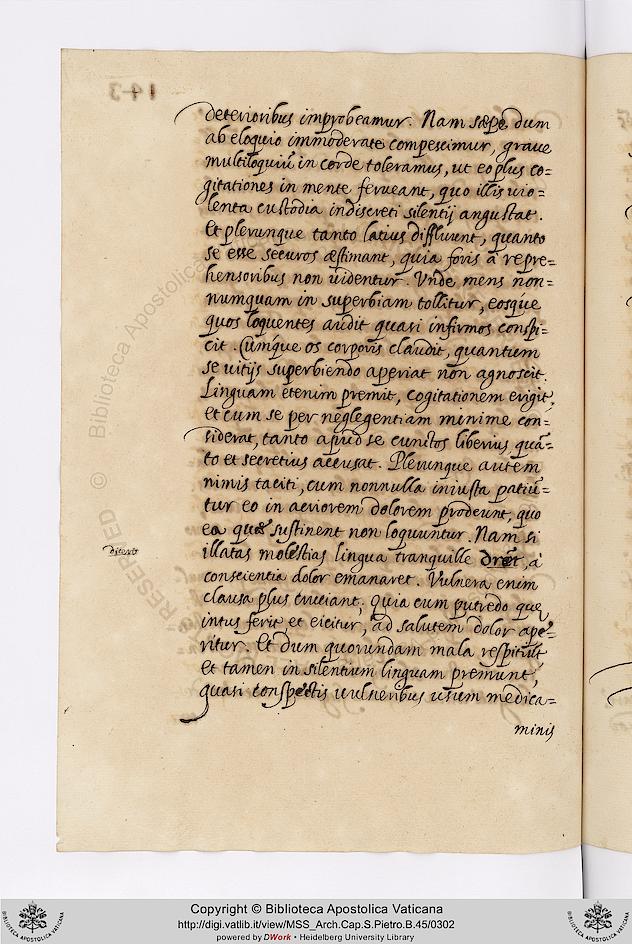 143
deterioribus improbeamur. Nam sæpe dum
ab eloquio immoderate compescimur, graue
multiloquiũ in corde toleramus, ut eo plus co=
gitationes in mente ferueant, quo illis uio=
lenta custodia indiscreti silentij angustat.
Et plerunque tanto latius diffluunt, quanto
se esse securos æstimant, quia foris à repre=
hensoribus non uidentur. Vnde mens non=
numquam in superbiam tollitur, eosque
quos loquentes audit quasi infirmos conspi=
cit. Cumque os corporis claudit, quantum
se uitijs superbiendo aperiat non agnoscit.
Linguam etenim premit, cogitationem erigit,
et cum se per neglegentiam minime con=
siderat, tanto apud se cunctos liberius quã=
to et secretius accusat. Plerunque autem
nimis taciti, cum nonnulla iniusta patiũ=
tur eo in acriorem dolorem prodeunt, quo
ea quæ sustinent non loquuntur. Nam si
illatas molestias lingua tranquille dret, à
conscientia dolor emanaret. Vulnera enim
clausa plus cruciant, quia cum putredo que
intus ferit et eicitur, ad salutem dolor ape=
ritur. Et dum quorundam mala respitiũt
et tamen in silentium linguam premunt,
quasi conspectis uulneribus usum medica=
minis
© Biblioteca Apostolica
RESERVED
Copyright © Biblioteca Apostolica Vaticana
http://digi.vatlib.it/view/MSS_Arch.Cap.S.Pietro.B.45/0302
powered by DWork • Heidelberg University Library